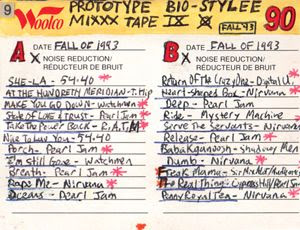 9
Woolco
PROTOTYPE BIO-STYLEE
MIXXX TAPE IX
FALL'93
90
A
DATE FALL OF 1993
NOISE REDUCTION/
RÉDUCTEUR DE BRUIT
SHE-LA - 54-40
AT THE HUNDRETH MERIDIAN - T. Hip
MAKE YOU GO DOWN - Watchmen
State of Love & Trust - Pearl Jam
Take the Power Back - R.A.T.M
Nice To Luv You - 54-40
Porch - Pearl Jam
I'm Still Gone - Watchmen
Breath - Pearl Jam
Rape Me - Nirvana
Oceans - Pearl Jam
B
DATE FALL OF 1993
NOISE REDUCTION/
RÉDUCTEUR DE BRUIT
Return Of The Crazy One - Digital U.
Heart-Shaped Box - Nirvana
Deep - Pearl Jam
Ride - Mystery Machine
Serve the Servants - Nirvana
Release - Pearl Jam
BabaKganoosh - Shuduvey Men
Dumb - Nirvana
Freak Mama - Sir Mix A Lot/
The Real Thing - Cypress Hill/Pearl Jam
Penny Royal Tea - Nirvana